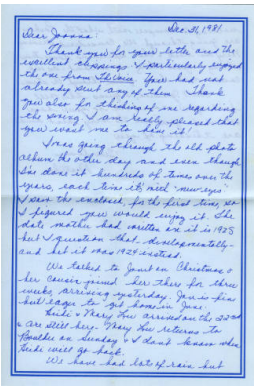 Dec. 31, 1981
Dear Joanna:
Thank you for your letter and the
excellent clippings. I particularly enjoyed
the one from You had not
already sent any of them. Thank
you also for thinking of me regarding
the song. I am really pleased that
you want me to have it!
I was going through the old photo
album the other day and even though
I've done it hundreds of times over the
years, each time it's with "new eyes"
I saw the enclosed for the first time, so
I figured you would enjoy it. The
date mother had written on it is 1928
but I question that, developmentally—
and bet it was 1924 instead.
We talked to Janet on Christmas &
her cousin joined her there for three
weeks, arriving yesterday. Jan is fine
but eager to get home in June.
& Mary Lou arrived on the 22nd
& are still here. Mary Lou returns to
Boulder on Sunday & I don't know when
will go back.
We have had lots of rain but